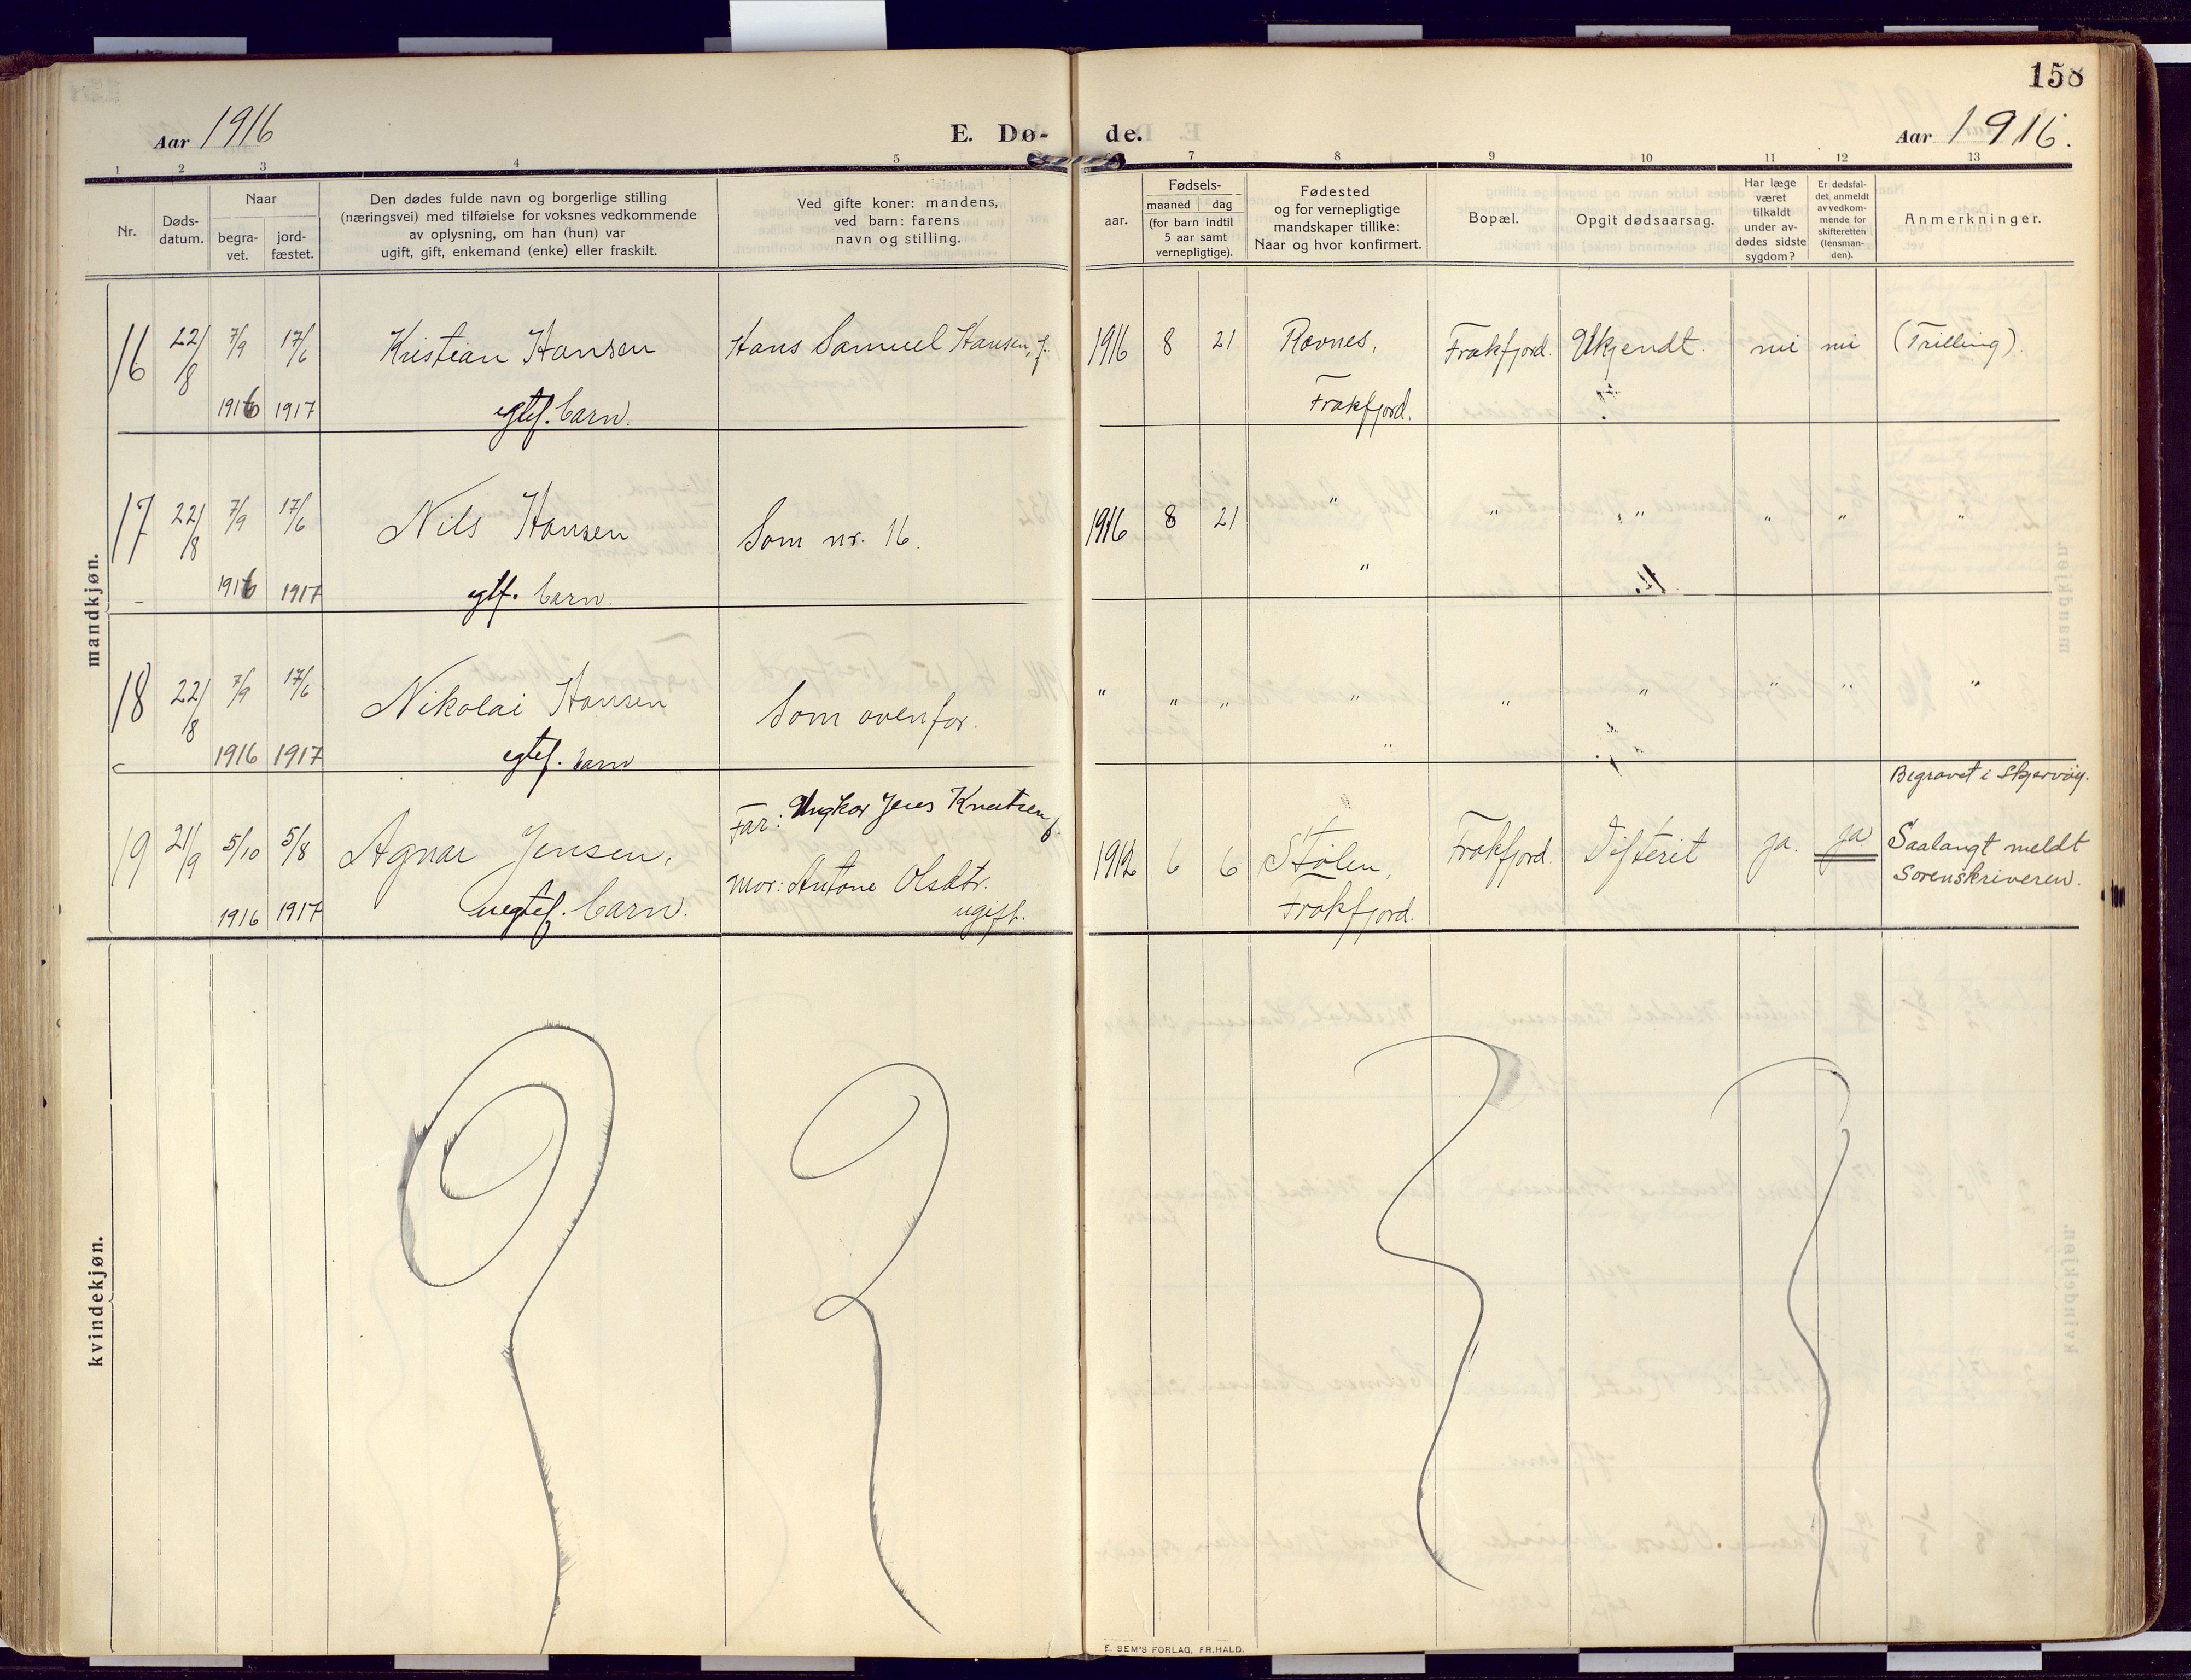 158
Aar 1916
E. Dø-
de.
Aar 1916.
1 2 3 4 5 6 7 8 9 10 11 12 13
Nr.
Døds-
datum.
Naar
begra-
vet.
jord-
fæstet.
Den dødes fulde navn og borgerlige stilling
(næringsvei) med tilføielse for voksnes vedkommende
av oplysning, om han (hun) var
ugift, gift, enkemand (enke) eller fraskilt.
Ved gifte koner: mandens,
ved barn: farens
navn og stilling.
aar.
Fødsels-
maaned dag
(for barn indtil
5 aar samt
vernepligtige).
Fødested
og for vernepligtige
mandskaper tillike:
Naar og hvor konfirmert.
Bopæl.
Opgit dødsaarsag.
Har læge
været
tilkaldt
under av-
dødes sidste
sygdom?
Er dødsfal-
det anmeldt
av vedkom-
mende for
skifteretten
(lensman-
den).
Anmerkninger.
mandkjøn.
16 22/8 7/9 17/6 Kristian Hansen Hans Samuel Hansen, f. 1916 8 21 Ravnes, Frakfjord. Ukjendt. nei nei (Trilling).
1916 1917 egtef. barn. Frakfjord.
17 22/8 7/9 17/6 Nils Hansen Som nr. 16. 1916 8 21 " " " " " "
1916 1917 egtf. barn. "
18 22/8 7/9 17/6 Nikolai Hansen Som ovenfor. " " " " " " " " "
1916 1917 egtef. barn "
Begravet i Skjervøy.
19 21/9 5/10 5/8 Agnar Jensen, Far: Ungkar Jens Knutsen f. 1912 6 6 Stølen, Frakfjord. Difterit ja. ja Saalangt meldt
Mor: Antone Olsdtr. Sorenskriveren.
1916 1917 uegtef. barn. ugift. Frakfjord.
kvindekjøn.
E. SEM'S FORLAG, FR.HALD.